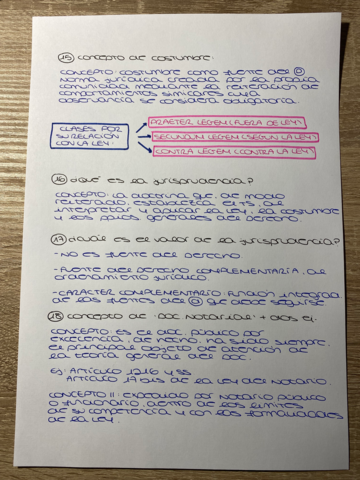 15) CONCEPTO DE COSTUMBRE:
CONCEPTO: COSTUMBRE COMO FUENTE DEL D
NORMA JURÍDICA CREADA POR LA PROPIA
COMUNIDAD MEDIANTE LA REITERACIÓN DE
COMPORTAMIENTOS SIMILARES CUYA
OBSERVANCIA SE CONSIDERA OBLIGATORIA.
CLASES POR
SU RELACIÓN
CON LA LEY:
PRAETER LEGEM (FUERA DE LEY)
SECUNDUM LEGEM (SEGÚN LA LEY)
CONTRA LEGEM (CONTRA LA LEY)
16) ¿QUÉ ES LA JURISPRUDENCIA?
CONCEPTO: LA DOCTRINA QUE DE MODO
REITERADO, ESTABLEZCA EL TS, AL
INTERPRETAR Y APLICAR LA LEY, LA COSTUMBRE
Y LOS PPIOS GENERALES DEL DERECHO
17) ¿CUÁL ES EL VALOR DE LA JURISPRUDENCIA?
- NO ES FUENTE DEL DERECHO
- FUENTE DEL DERECHO COMPLEMENTARIA, DEL
ORDENAMIENTO JURÍDICO
- CARÁCTER COMPLEMENTARIO: FUNCIÓN INTEGRADA
DE LAS FUENTES DEL D QUE DEBE SEGUIRSE
18) CONCEPTO DE DOC NOTARIAL + DOS EJ.
CONCEPTO: ES EL DOC. PÚBLICO POR
EXCELENCIA, DE HECHO, HA SIDO SIEMPRE
EL PRINCIPAL OBJETO DE ATENCIÓN DE
LA TEORÍA GENERAL DEL DOC.
EJ: ARTÍCULO 1216 Y SS
ARTÍCULO 17 BIS DE LA LEY DEL NOTARIO.
CONCEPTO II: EXPEDIDO POR NOTARIO PÚBLICO
O FUNCIONARIO, DENTRO DE LOS LÍMITES
DE SU COMPETENCIA Y CON LAS FORMALIDADES
DE LA LEY.